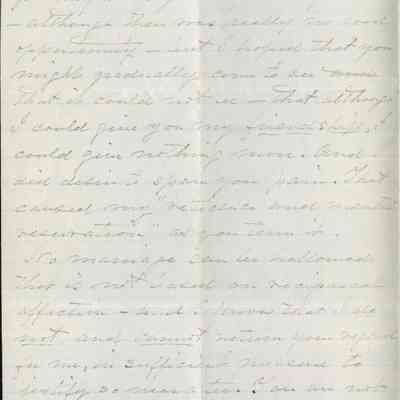 – although there was really no good
opportunity – but I hoped that you
might gradually come to see
that it could not be – that although
I could give you my friendship, I
could give nothing more. And
did desire to spare you pain. That
caused my "reticence and mental
reservation" as you term it.
No marriage can be
that is not based on reciprocal
affection – and I know that I do
not and cannot return your regard
for me, in sufficient measure to
justify so